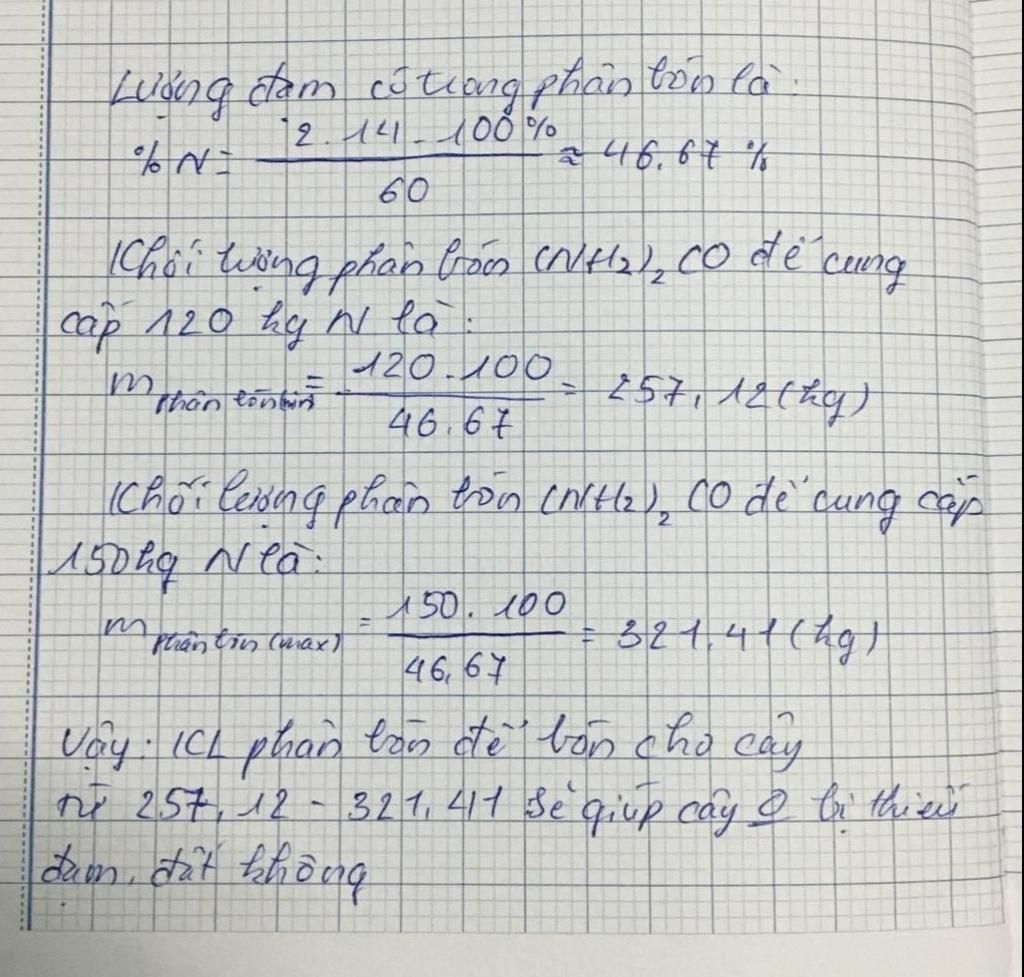 Lượng đạm có trong phân bón là:
% N = 2.14.100% / 60 ≈ 46.67 %
Khối lượng phân bón (NH2)2 CO để cung
cấp 120 kg N là:
m phân bón(min) = 120.100 / 46.67 = 257,12 (kg)
Khối lượng phân bón (NH2)2 CO để cung cấp
150kg N là:
m phân bón (max) = 150.100 / 46,67 = 321,41 (kg)
Vậy: KL phân bón để bón cho cây
từ 257,12 - 321,41 sẽ giúp cây o bị thiếu
đạm, đất không